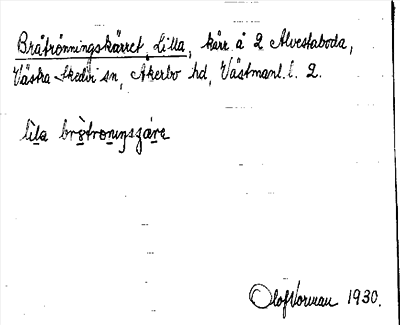 Bråtrönningskärret, Lilla, kärr å 2 Alvestaboda,
Västra Skedvi sn, Åkerbo hd, Västmanl. l. 2.
lila brötroningsɟäre
Olof Vorman 1930.